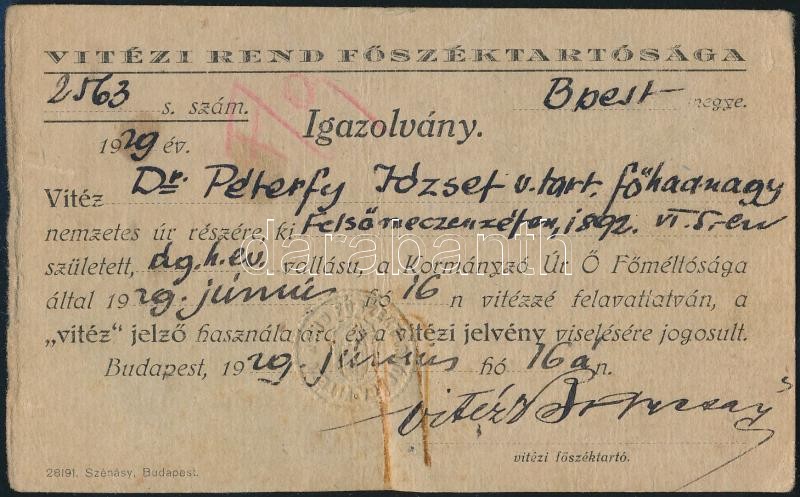 VITÉZI REND FŐSZÉKTARTÓSÁGA
2563 s. szám. Bpest megye.
Igazolvány.
1929 év.
Vitéz Dr. Péterfy József v. tart. főhadnagy
nemzetes úr részére, ki Felsőmeczenzéfen, 1892. VI. 5.-én
született, ág. h. ev. vallásu, a Kormányzó Úr Ő Főméltósága
által 1929. június hó 16 n vitézzé felavattatván, a
„vitéz” jelző használatára és a vitézi jelvény viselésére jogosult.
Budapest, 1929. június hó 16 án.
vitéz
vitézi főszéktartó.
28191. Szénásy, Budapest.
darabanth